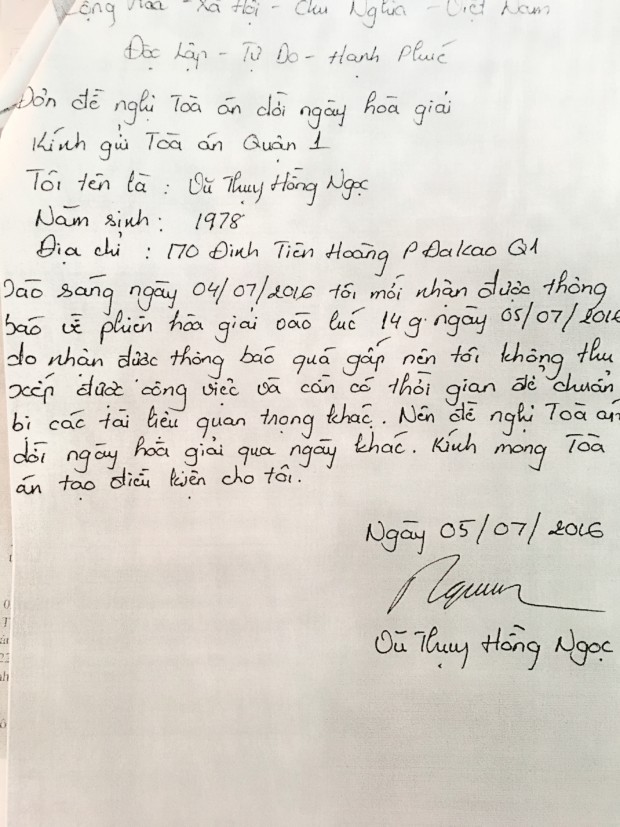 Cộng Hòa - Xã Hội - Chủ Nghĩa - Việt Nam
Độc Lập - Tự Do - Hạnh Phúc
Đơn đề nghị Toà án dời ngày hoà giải
Kính gửi Toà án Quận 1
Tôi tên là : Vũ Thụy Hồng Ngọc
Năm sinh : 1978
Địa chỉ : 170 Đinh Tiên Hoàng P Đakao Q1
Vào sáng ngày 04/07/2016 tôi mới nhận được thông
báo về phiên hòa giải vào lúc 14g ngày 05/07/2016
do nhận được thông báo quá gấp nên tôi không thu
xếp được công việc và cần có thời gian để chuẩn
bị các tài liệu quan trọng khác. Nên đề nghị Toà án
dời ngày hoà giải qua ngày khác. Kính mong Toà
án tạo điều kiện cho tôi.
Ngày 05/07/2016
Vũ Thụy Hồng Ngọc